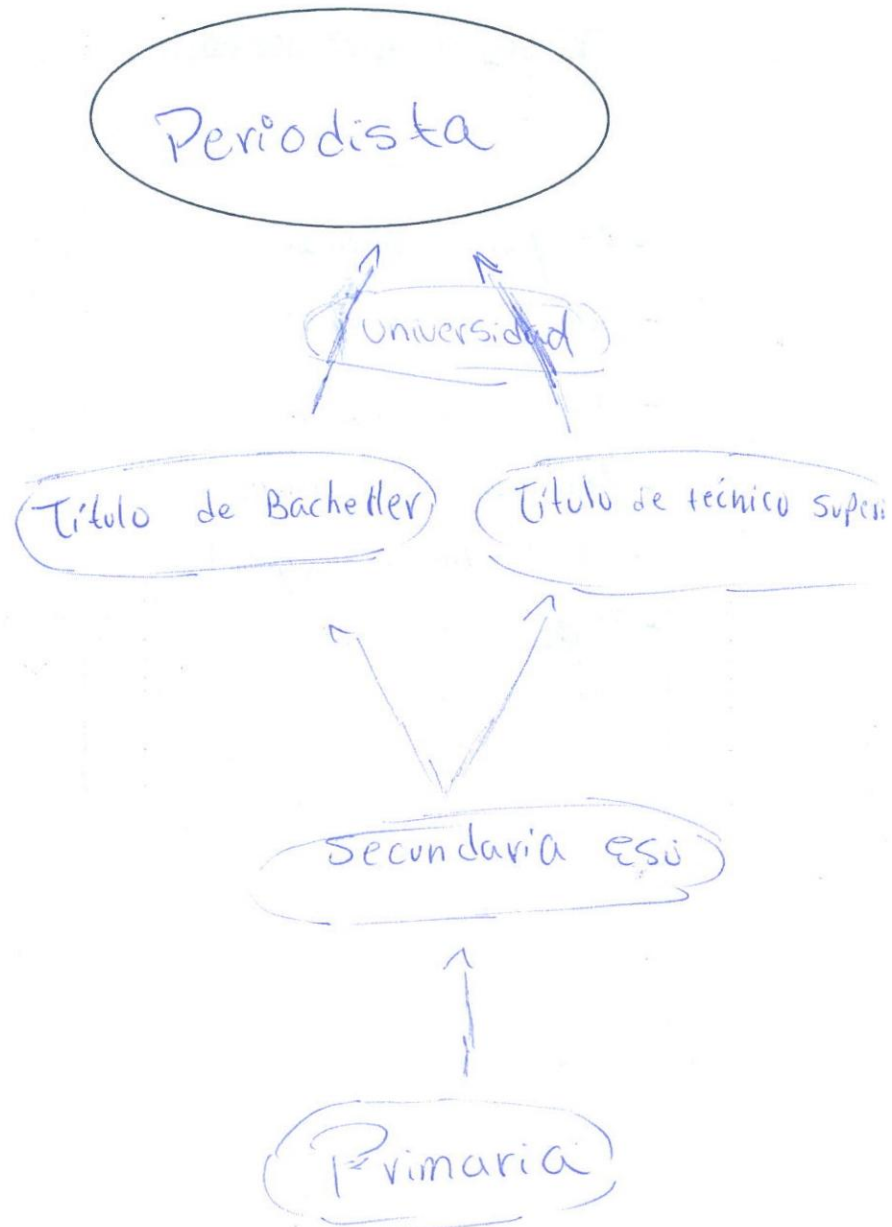 Periodista
Universidad
Título de Bacheller
Título de técnico Superi
Secundaria ESO
Primaria